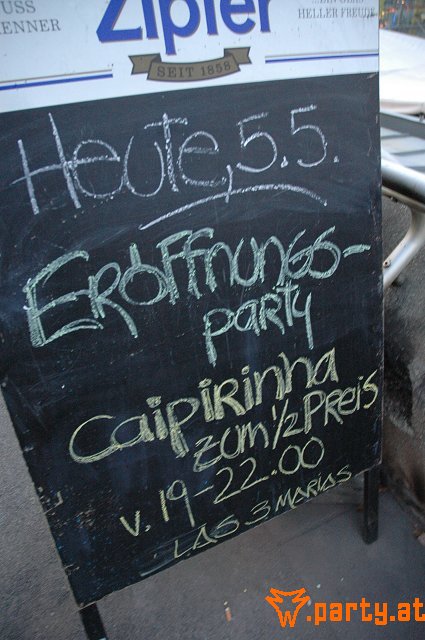 USS
ENNER
Zipfer
EIN GLAS
HELLER FREUDE
SEIT 1858
Heute, 5.5.
Eröffnungs-
party
Caipirinha
zum 1/2 Preis
v. 19-22.00
LAS 3 MARIAS
w.party.at